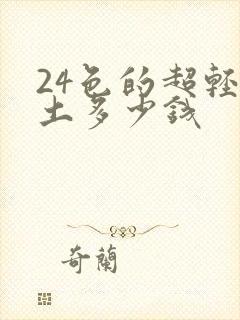 24色的超轻
土多少钱
奇蘭